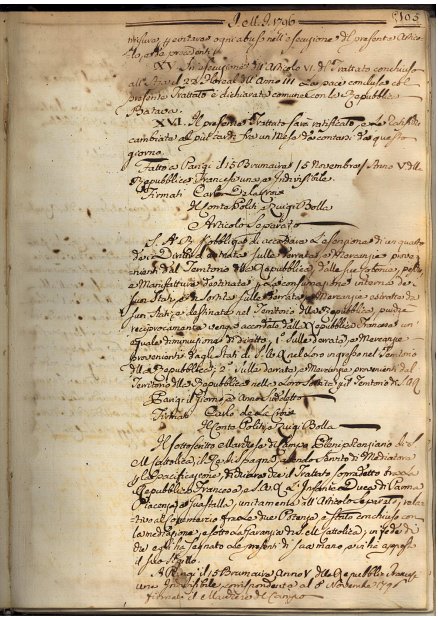 1796
105
misura evitare ogni abuso nell'esecuzione del presente Artico-
lo precedenti
XV. In esecuzione dell'Articolo VI. del Trattato conchiuso
all' il 28 Floreal dell'Anno III. La pace conclusa col
presente Trattato è dichiarata comune con la Repubblica
Batava.
XVI. Il presente Trattato sarà ratificato, e le Ratifiche
cambiate al più tardi fra un Mese da contarsi da questo
giorno.
Fatto a Parigi il 15 Brumaire (5 Novembre) Anno V della
Repubblica Francese una ed Indivisibile.
Firmati Carlo Delacroix
Il Conte Politi Luigi Bolla
Articolo Separato
S. A. R. si obbliga di accordare la di un quarto
de' Diritti d'entrata sulle derrate e Mercanzie prove-
nienti dal Territorio della Repubblica, dalle sue Colonie, pesche,
e Manifatture destinate per la consumazione interna de'
suoi Stati, e di sortita sulle derrate, e Mercanzie estratte da'
suoi Stati, e destinate nel Territorio della Repubblica, purché
reciprocamente venga accordato dalla Repubblica Francese un'
eguale diminuzione di diritto, 1º sulle derrate, e Mercanzie
provenienti dagli Stati di S. A. R. nel loro ingresso nel Territorio
della Repubblica; 2º Sulle derrate, e Mercanzie provenienti dal
Territorio della Repubblica nella loro sortita pel Territorio di S. A. R.
Parigi il giorno, e Anno suddetto
Firmati Carlo de la Croix
Il Conte Politi Luigi Bolla
Il sottoscritto Marchese del Campo di S.
M. Cattolica il Re di Spagna, avendo servito di Mediatore
per la Pacificazione, dichiara che il Trattato sopradetto tra la
Repubblica Francese e S. A. R. L'Infante Duca di Parma
Piacenza, e Guastalla, unitamente all'Articolo separato, rela-
tivo al fra le due Potenze, è stato conchiuso con
la mediazione, e sotto la Garanzia di S. M. Cattolica; in fede di
che egli ha segnato le presenti di sua mano, e vi ha apposto
il suo Sigillo.
A Parigi il 15 Brumaire Anno V della Repubblica Francese
una Indivisibile, corrispondente al 5 Novembre 1796
firmato il Marchese del Campo